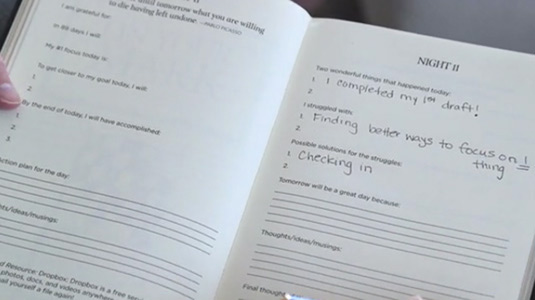 until tomorrow what you are willing
to die having left undone. —PABLO PICASSO
I am grateful for:
In 89 days I will
My #1 focus today is:
To get closer to my goal today, I will:
1.
2.
By the end of today, I will have accomplished:
1.
2.
3.
ction plan for the day:
hts/ideas/musings:
d Resource: Dropbox: Dropbox is a free
photos, docs, and videos anywhere
ail yourself a file again!
NIGHT 11
Two wonderful things that happened today:
1. I completed my 1st draft!
2.
I struggled with:
1. Finding better ways to focus on 1
thing
2.
Possible solutions for the struggles:
1. Checking in
2.
Tomorrow will be a great day because:
Thoughts/ideas/musings:
Final though